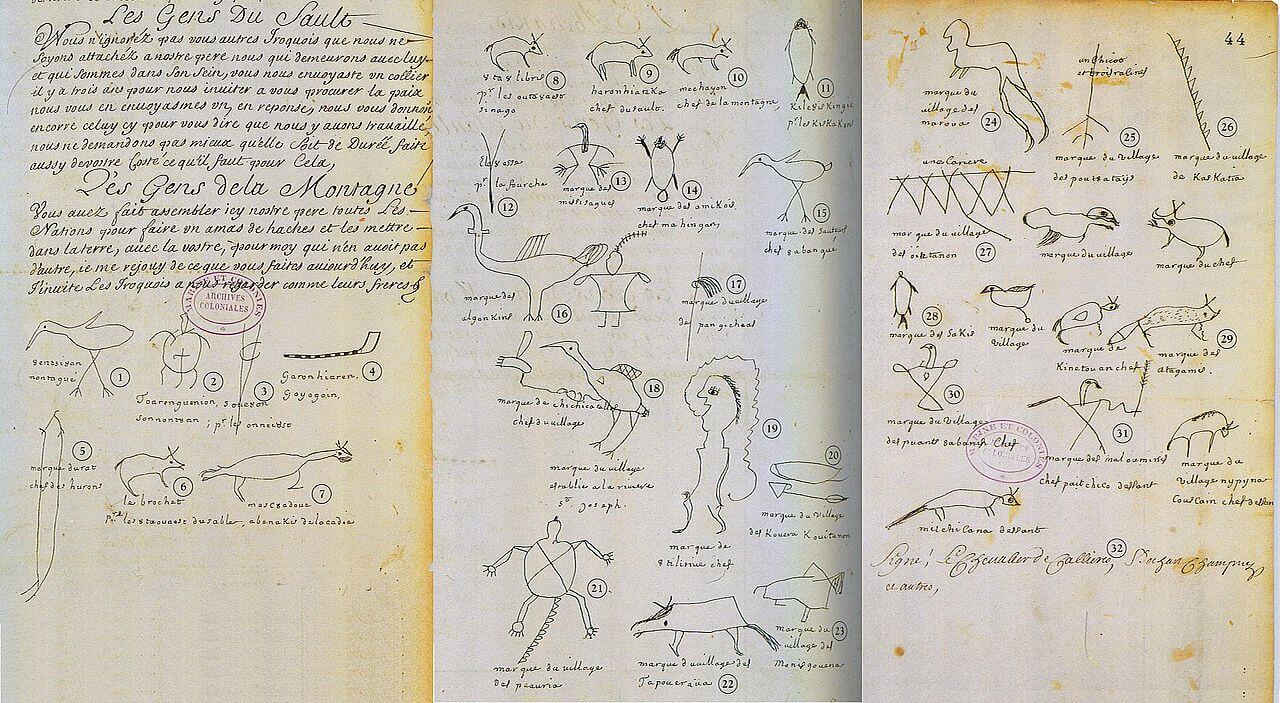 Les Gens Du Sault
Vous n'ignorez pas vous autres Iroquois que nous ne
soyons attachez a nostre pere nous qui demeurons avec luy
et qui sommes dans son sein, vous nous envoyaste un collier
il y a trois ans pour nous inviter a vous procurer la paix
nous vous en envoyasmes vn, en reponse, nous vous donnons
encorre celuy cy pour vous dire que nous y avons travaillé
nous ne demandons pas mieux qu'elle soit de Durée faite
aussy de vostre Costé ce qu'il faut pour Cela,
Des Gens de la Montagne
Vous avez fait assembler icy nostre pere toutes Les
Nations pour faire vn amas de haches et les mettre
dans la terre, avec la vostre, pour moy qui n'en avoit pas
d'autre, ie me rejouy de ce que vous faites aujourd'huy, et
J'invite Les Iroquois a nous regarder comme leurs freres
ARCHIVES
COLONIALES
1
2
3
Garonhiaren.
Goyogoin,
4
Toarenguenion,
sonnontuan ; pr les onneiost
5
marque du rat
chef des hurons
6
le brochet
pr les 8ta8ast du sable,
7
mescadoue
abenakis de lacadie
8
pr les outa8ast
sinago
9
haronhiateka
chef du sault.
10
mechayon
chef de la montagne
11
Kileskingie
pr les KisKaKons
12
pr la fourche
13
marque des
missisagues
14
marque des amikois.
chef mahingan,
15
marque des sauteurs
chef 8abangué
16
marque des
algonkins
17
marque du village
de pangicheas
18
marque de chichicatalo
chef du village
marque du village
establie a la riviere
St Joseph.
19
marque de
chef
20
marque du village
des Kouera Kouitanon
21
marque du village
des peauria
22
marque du village des
Tapoueraüa
23
marque du
village des
Monisgouena
44
24
marque du
village des
maroua
un chicot
et trois racines
25
marque du village
des pouteatamis
26
marque du village
de Kaskakia
une Cariere
27
marque du village
des 8ietanon
marque du village
marque du chef
28
marque des Sakis
marque du
village
marque de
Kinetouan chef
29
marque des
atagamis.
30
marque du Village
des puants 8abanes Chef
31
marque des maloumines
chef paitchico dessant
marque du
Village nypyng
Coulcain chef dessant
melchilana dessant
32
Signé, Le Chevalier de Calliere, Bochart Champigny
et autres,